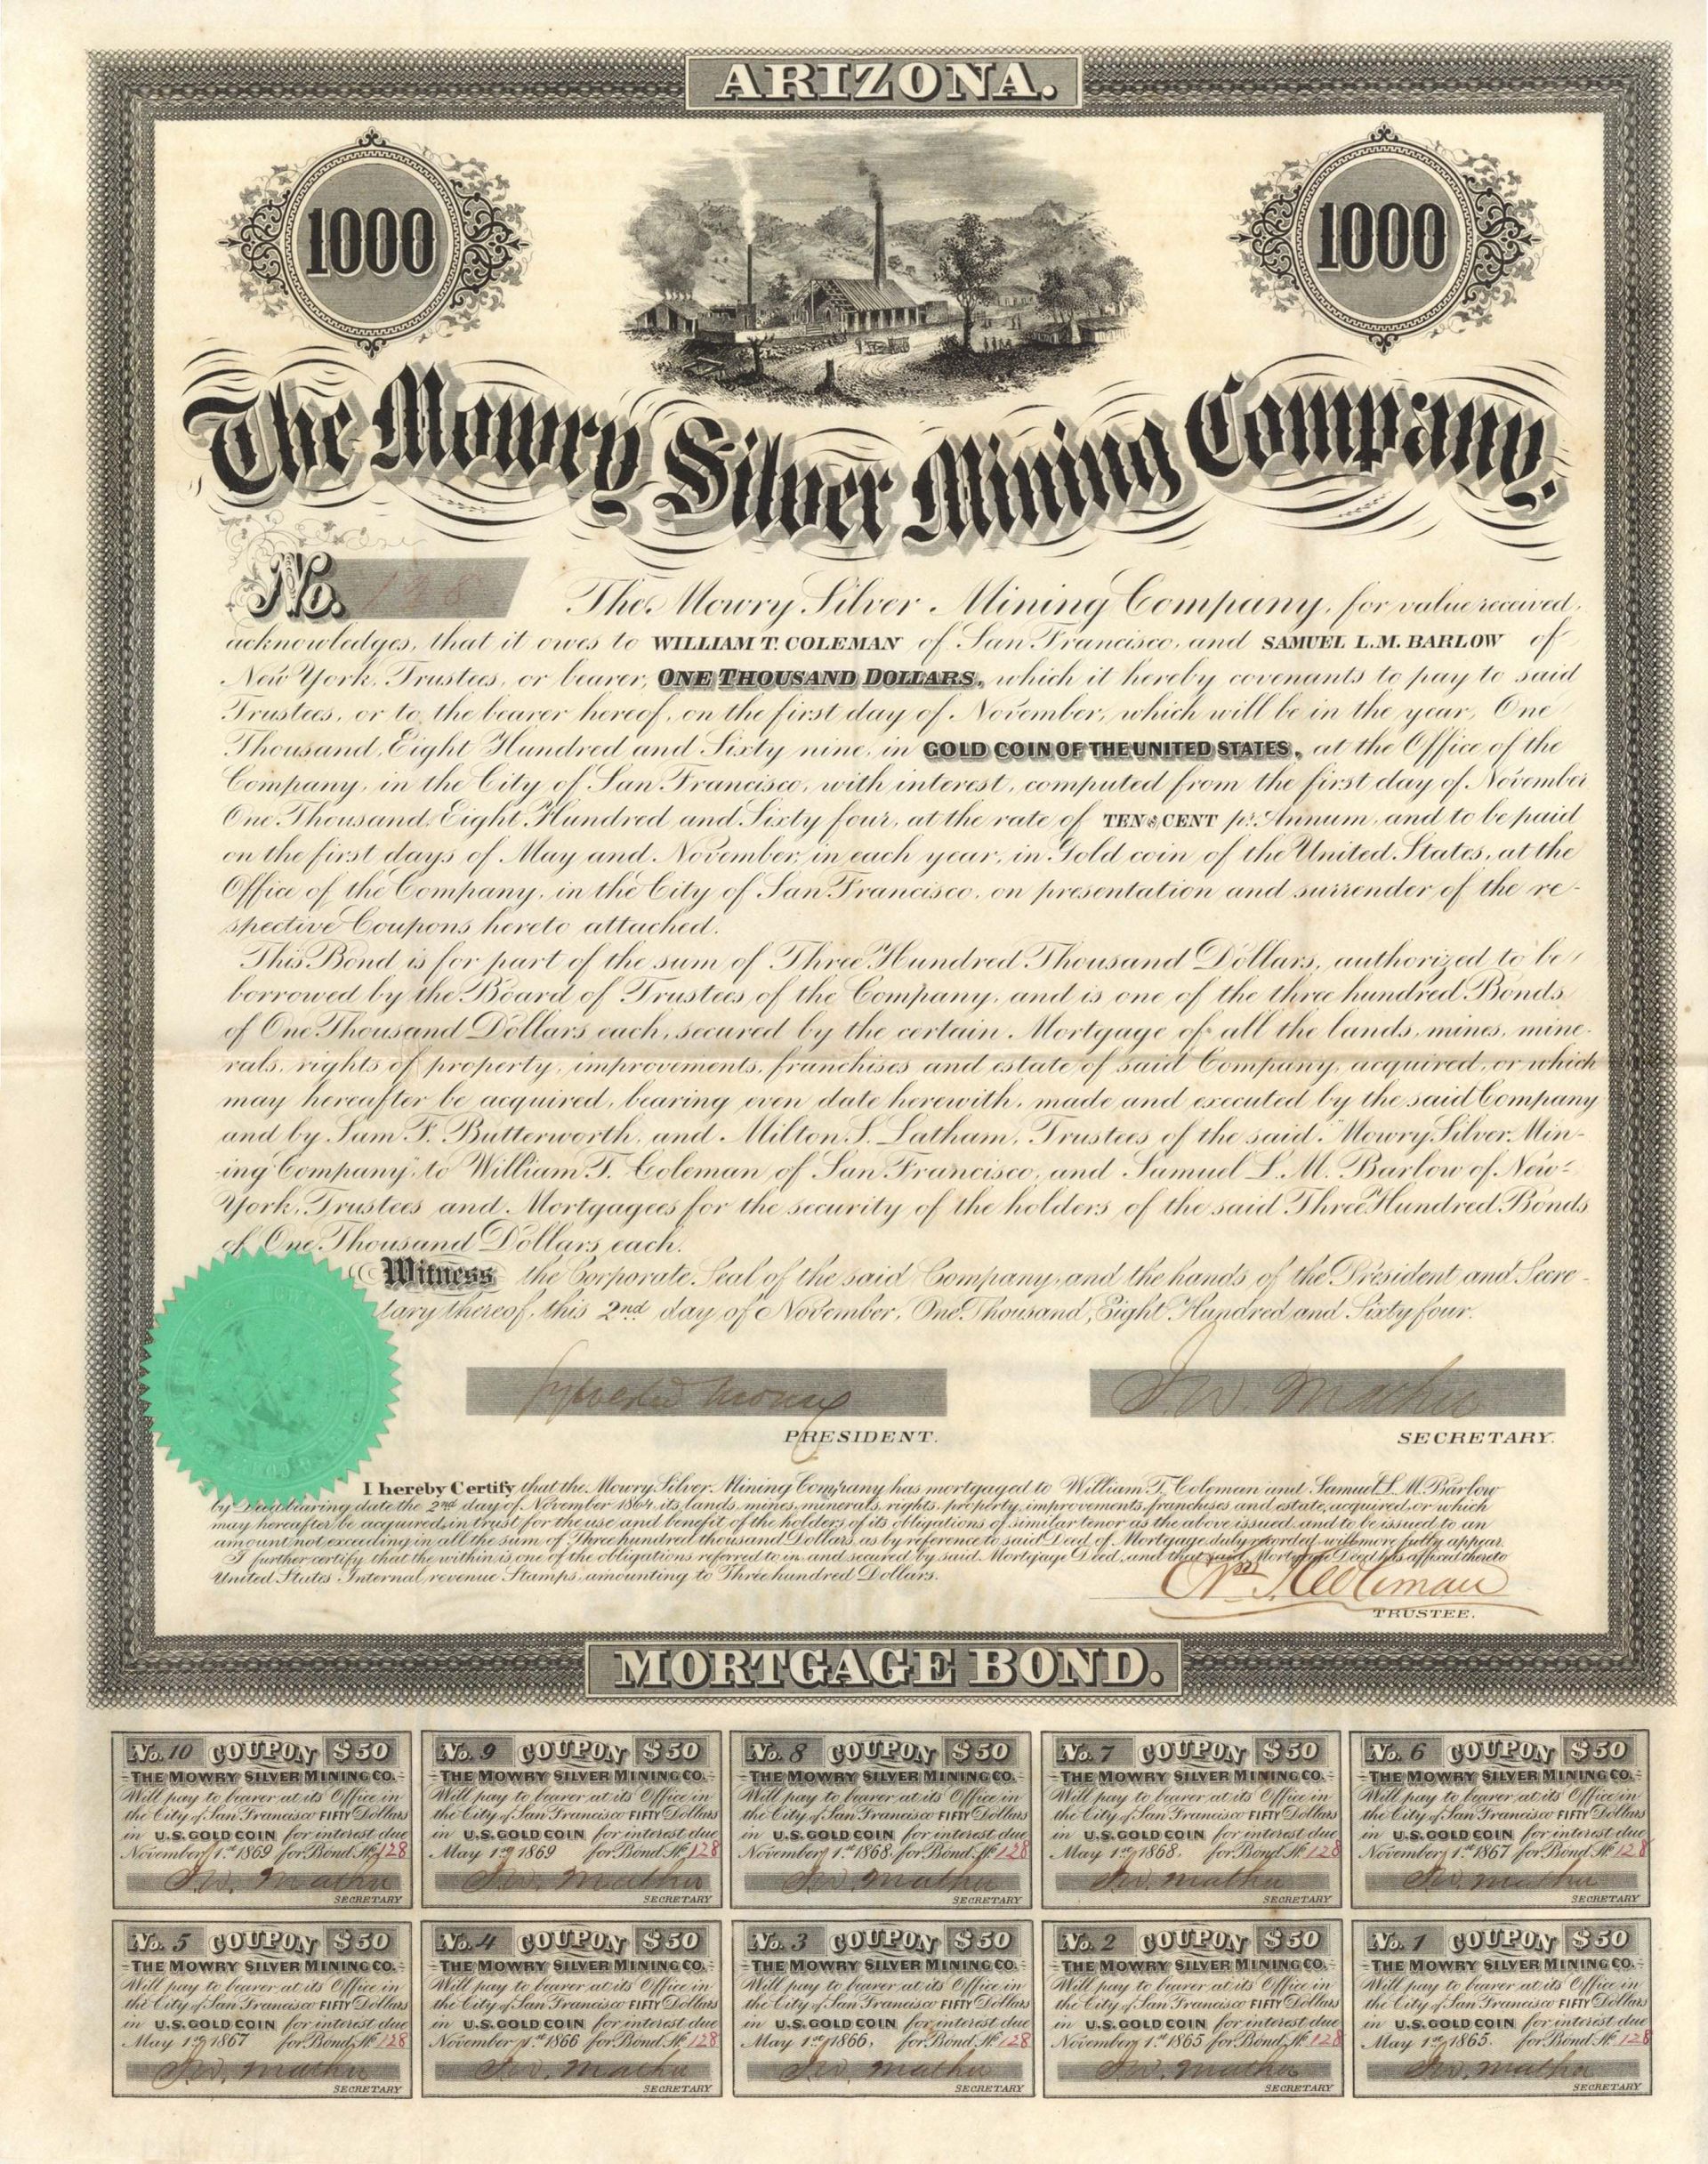 ARIZONA.
1000
1000
The Mowry Silver Mining Company.
No. 128
The Mowry Silver Mining Company, for value received,
acknowledges, that it owes to WILLIAM T. COLEMAN of San Francisco, and SAMUEL L.M. BARLOW of
New York, Trustees, or bearer, ONE THOUSAND DOLLARS, which it hereby covenants to pay to said
Trustees, or to the bearer hereof, on the first day of November, which will be in the year, One
Thousand, Eight Hundred and Sixty nine, in GOLD COIN OF THE UNITED STATES, at the Office of the
Company, in the City of San Francisco, with interest, computed from the first day of November
One Thousand, Eight Hundred, and Sixty four, at the rate of TEN PR CENT pr. Annum, and to be paid
on the first days of May and November, in each year, in Gold coin of the United States, at the
Office of the Company, in the City of San Francisco, on presentation and surrender of the re-
spective Coupons hereto attached.
This Bond is for part of the sum of Three Hundred Thousand Dollars, authorized to be
borrowed by the Board of Trustees of the Company, and is one of the three hundred Bonds
of One Thousand Dollars each, secured by the certain Mortgage of all the lands, mines, mine-
rals, rights of property, improvements, franchises and estate of said Company, acquired, or which
may hereafter be acquired, bearing even date herewith, made and executed by the said Company
and by Sam F. Butterworth, and Milton S. Latham, Trustees of the said "Mowry Silver Min-
-ing Company" to William T. Coleman, of San Francisco, and Samuel L. M. Barlow of New-
York, Trustees and Mortgagees for the security of the holders of the said Three Hundred Bonds
of One Thousand Dollars each.
Witness the Corporate Seal of the said Company, and the hands of the President and Secre-
tary thereof, this 2nd day of November, One Thousand, Eight Hundred and Sixty four.
Sylvester Mowry
PRESIDENT.
J. W. Mather
SECRETARY.
I hereby Certify that the Mowry Silver Mining Company has mortgaged to William T. Coleman and Samuel L. M. Barlow
by Deed bearing date the 2nd day of November 1864, its lands, mines, minerals, rights, property, improvements, franchises and estate, acquired, or which
may hereafter be acquired, in trust for the use and benefit of the holders of its obligations of similar tenor as the above issued, and to be issued to an
amount not exceeding in all the sum of Three hundred thousand Dollars, as by reference to said Deed of Mortgage duly recorded will more fully appear.
I further certify that the within is one of the obligations referred to in and secured by said Mortgage Deed, and that said Mortgage Deed has affixed thereto
United States Internal revenue Stamps, amounting to Three hundred Dollars.
Wm. T. Coleman
TRUSTEE.
MORTGAGE BOND.
No. 10 COUPON $50
THE MOWRY SILVER MINING CO.
Will pay to bearer at its Office in
the City of San Francisco FIFTY Dollars
in U.S. GOLD COIN for interest due
November 1st 1869 for Bond No. 128
J. W. Mather
SECRETARY
No. 9 COUPON $50
THE MOWRY SILVER MINING CO.
Will pay to bearer at its Office in
the City of San Francisco FIFTY Dollars
in U.S. GOLD COIN for interest due
May 1st 1869 for Bond No. 128
J. W. Mather
SECRETARY
No. 8 COUPON $50
THE MOWRY SILVER MINING CO.
Will pay to bearer at its Office in
the City of San Francisco FIFTY Dollars
in U.S. GOLD COIN for interest due
November 1st 1868. for Bond No. 128
J. W. Mather
SECRETARY
No. 7 COUPON $50
THE MOWRY SILVER MINING CO.
Will pay to bearer at its Office in
the City of San Francisco FIFTY Dollars
in U.S. GOLD COIN for interest due
May 1st 1868. for Bond No. 128
J. W. Mather
SECRETARY
No. 6 COUPON $50
THE MOWRY SILVER MINING CO.
Will pay to bearer at its Office in
the City of San Francisco FIFTY Dollars
in U.S. GOLD COIN for interest due
November 1st 1867 for Bond No. 128
J. W. Mather
SECRETARY
No. 5 COUPON $50
THE MOWRY SILVER MINING CO.
Will pay to bearer at its Office in
the City of San Francisco FIFTY Dollars
in U.S. GOLD COIN for interest due
May 1st 1867 for Bond No. 128
J. W. Mather
SECRETARY
No. 4 COUPON $50
THE MOWRY SILVER MINING CO.
Will pay to bearer at its Office in
the City of San Francisco FIFTY Dollars
in U.S. GOLD COIN for interest due
November 1st 1866 for Bond No. 128
J. W. Mather
SECRETARY
No. 3 COUPON $50
THE MOWRY SILVER MINING CO.
Will pay to bearer at its Office in
the City of San Francisco FIFTY Dollars
in U.S. GOLD COIN for interest due
May 1st 1866, for Bond No. 128
J. W. Mather
SECRETARY
No. 2 COUPON $50
THE MOWRY SILVER MINING CO.
Will pay to bearer at its Office in
the City of San Francisco FIFTY Dollars
in U.S. GOLD COIN for interest due
November 1st 1865 for Bond No. 128
J. W. Mather
SECRETARY
No. 1 COUPON $50
THE MOWRY SILVER MINING CO.
Will pay to bearer at its Office in
the City of San Francisco FIFTY Dollars
in U.S. GOLD COIN for interest due
May 1st 1865. for Bond No. 128
J. W. Mather
SECRETARY